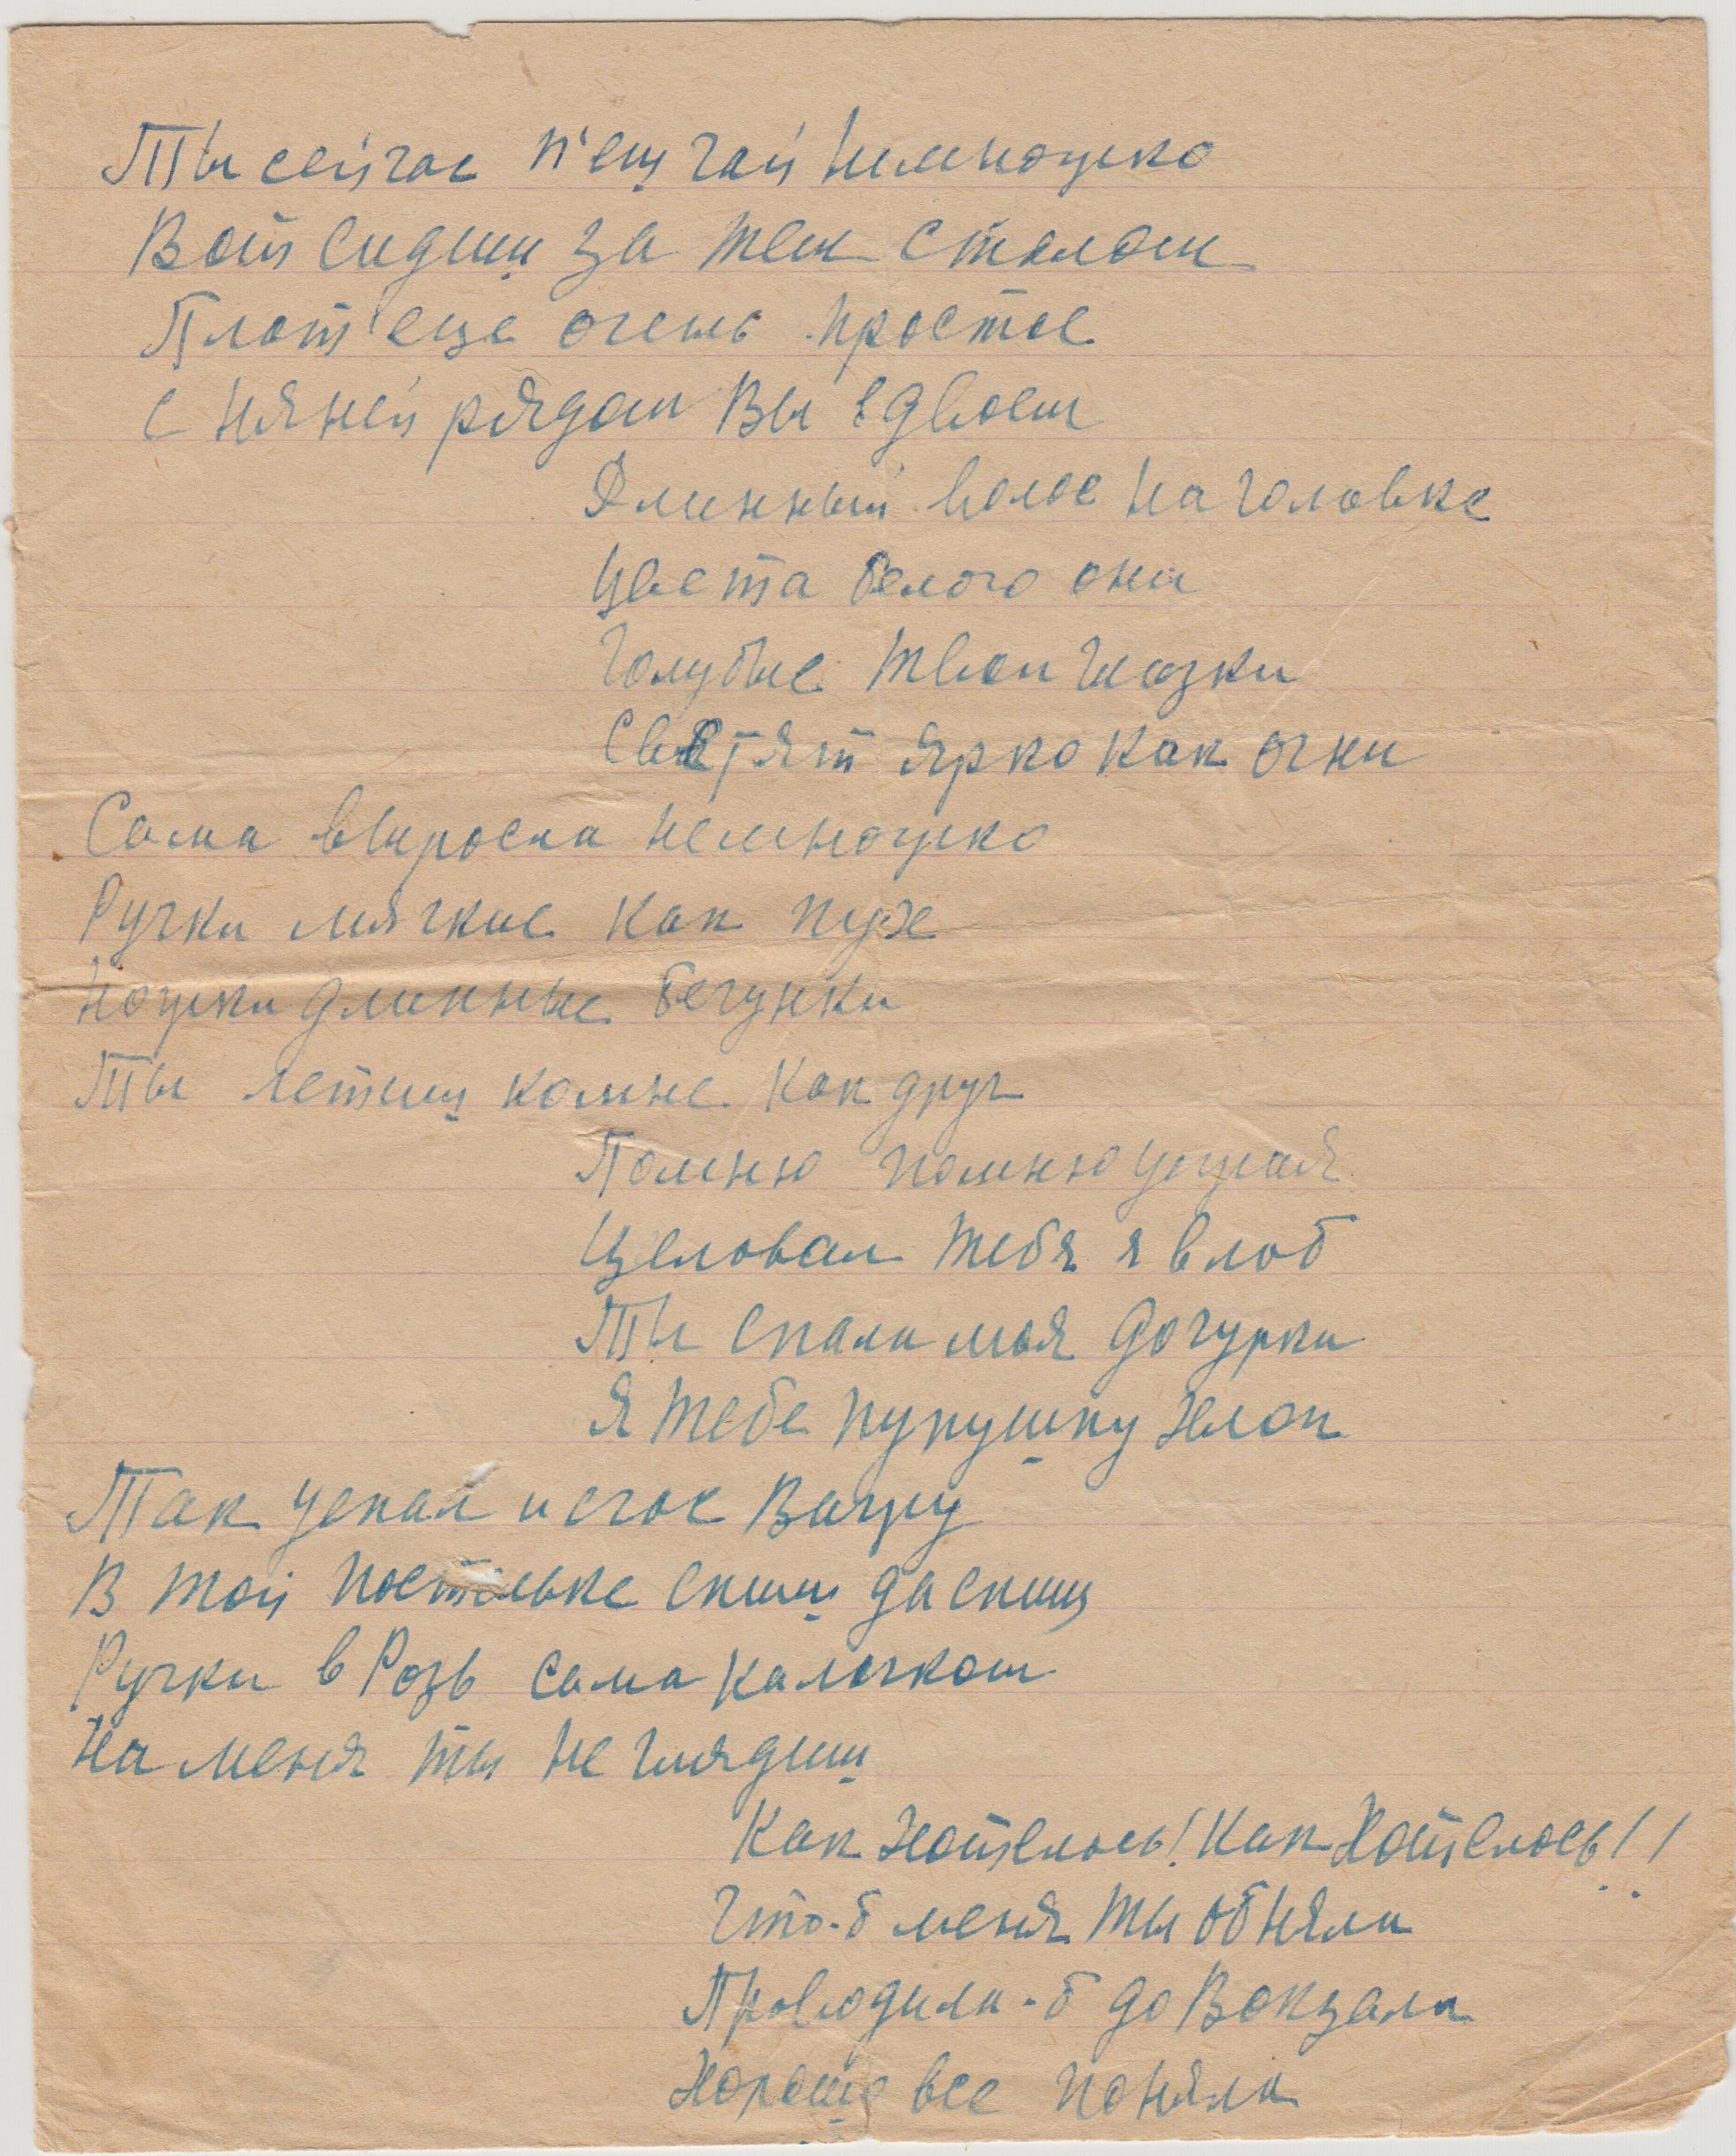 Ты сейчас п'ещ чай немношко
Вот сидиш за тем столом
Плот еще очень простое
С няней рядом Вы вдвоем
Длинный волос на головке
Цвета белого они
Голубые твои глазки
Светят ярко как огни
Сама выросла немношко
Ручки мягкие как пух
Ношки длинные бегунки
Ты летиш комне как друг
Помню помню уежая
Целовал тебя я в лоб
Ты спала моя дочурка
Я тебе пупушку хлоп
Так уехал и счас Вижу
В той постельке спиш да спиш
Ручки в Розь сама калачком
На меня ты не глядиш
Как Хотелось! Как Хотелось!!
Что-б меня ты обняла
Проводила-б до Вокзала
Хорошо все поняла